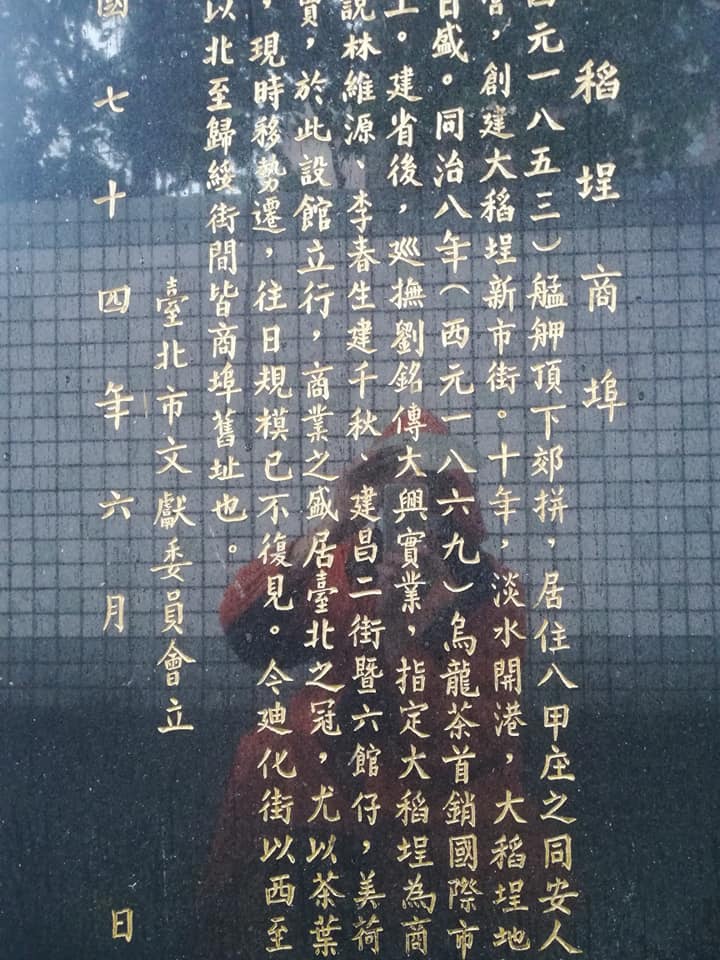 稻埕商埠
西元一八五三）艋舺頂下郊拼，居住八甲庄之同安人
營，創建大稻埕新市街。十年，淡水開港，大稻埕地
日盛。同治八年（西元一八六九）烏龍茶首銷國際市
上。建省後，巡撫劉銘傳大興實業，指定大稻埕為商
說林維源、李春生建千秋、建昌二街暨六館仔，美荷
賈，於此設館立行，商業之盛居臺北之冠，尤以茶葉
，現時移勢遷，往日規模已不復見。今廸化街以西至
以北至歸綏街間皆商埠舊址也。
臺北市文獻委員會立
國七十四年六月 日